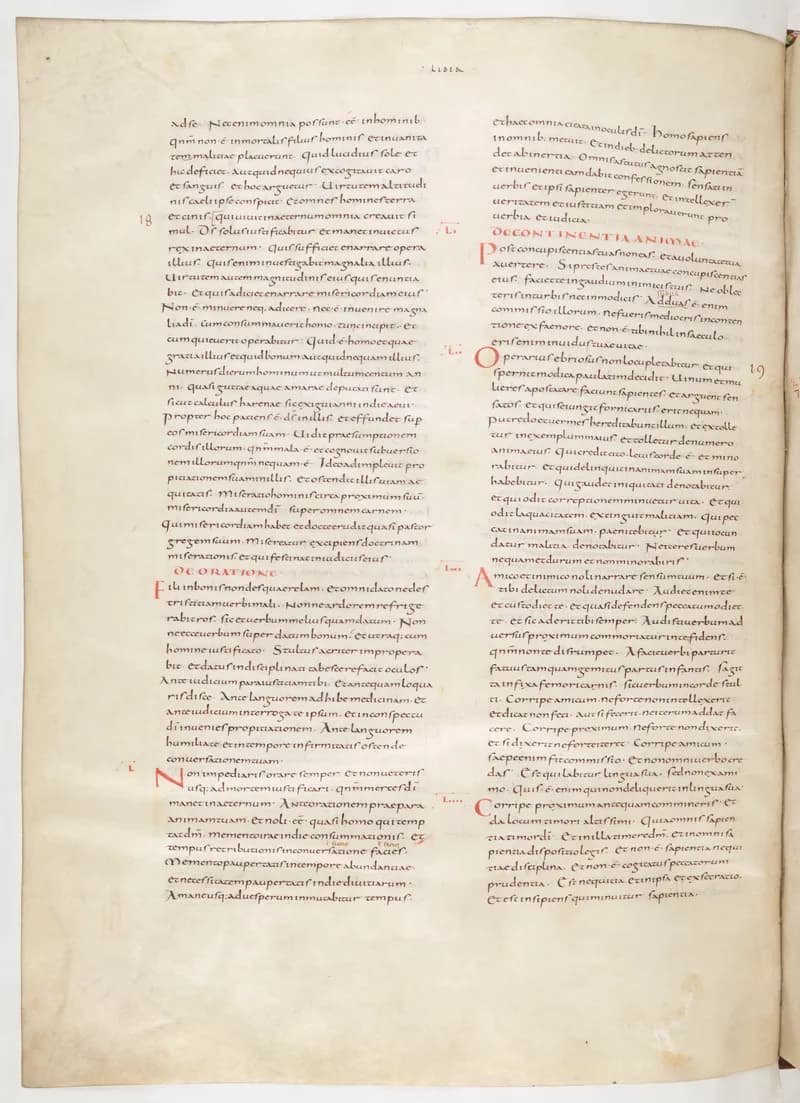 LIBER
ad se. Nec enim omnia possunt ee in hominib;
qnm non e inmortalis filius hominis et in uanita
tem malitiae placuerunt. Quid lucidius sole et
hic deficiet. Aut quid nequius excogitauit caro
et sanguis et hoc arguetur. Uirtutem altitudi
nis caeli ipse conspicit. Et omnes homines terra
18 et cinis. qui uiuit in aeternum omnia creauit si
mul. Ds solus iustificabitur et manet inuictus
rex in aeternum. Quis sufficiet enarrare opera
illius. Quis enim inuestigabit magnalia illius.
Uirtutem autem magnitudinis eius quis enuntia
bit. Et quis adiciet enarrare misericordiam eius.
Non e minuere neq; adicere. nec e inuenire magna
lia di. Cum consummauerit homo. tunc incipit. et
cum quieuerit operabitur. Quid e homo et quae
gratia illius et quid bonum aut quid nequam illius.
Numerus dierum hominum ut multum centum an
ni. quasi guttae aquae amarae deputati sunt. et
sicut calculus harenae sic exigui anni in die aeui.
Propter hoc patiens e ds in illis. et effundet sup
eos misericordiam suam. Uidit praesumptionem
cordis illorum. qnm mala e. et cognouit subuersio
nem illorum qnm nequam e. Ideo adimpleuit pro
pitationem suam in illis. Et ostendit illis uiam ae
quitatis. Miseratio hominis circa proximum suu.
misericordia autem di super omnem carnem.
Qui misericordiam habet et docet erudit quasi pastor
gregem suum. Miseretur excipiens doctrinam
miserationis et qui festinat in iudiciis eius.
DE ORATIONE
Fili in bonis non des quaerelam. et omni dato ne des
tristitiam uerbi mali. Nonne ardorem refrige
rabit ros. sic et uerbum melius quam datum. Non
ne ecce uerbum super datum bonum. et utraq; cum
homine iustificato. Stultus acriter impropera
bit. et datus indisciplinati tabescere facit oculos.
Ante iudicium para iustitiam tibi. et antequam loqua
ris disce. Ante languorem adhibe medicinam. et
ante iudicium interroga te ipsum. et in conspectu
di inuenies propitiationem. Ante languorem
humilia te et in tempore infirmitatis ostende
conuersationem tuam.
L Non impediaris orare semper et non ueteris
usq; ad mortem iustificari. qnm merces di
manet in aeternum. Ante orationem praepara
animam tuam. et noli ee quasi homo qui temp
tat dm. Memento irae in die consummationis. et
tempus retributionis in conuersatione faciei.
Memento paupertatis in tempore abundantiae.
et necessitatem paupertatis in die diuitiarum.
A mane usq; ad uesperum inmutabitur tempus.
et haec omnia citata in oculis di. homo sapiens
in omnib; metuit. et in dieb; delictorum atten
det ab inertia. Omnis astutus agnoscit sapientia
et inuenienti eam dabit confessionem. sensati in
uerbis et ipsi sapienter egerunt. et intellexer
ueritatem et iustitiam et implorauerunt pro
uerbia et iudicia.
LI DE CONTINENTIA ANIMAE
Post concupiscentias tuas non eas. et a uoluntate tua
auertere. Si prestes animae tuae concupiscentias
eius. faciet te in gaudium inimicis tuis. Ne oblec
teris in turbis nec inmodicis. Adsidua e enim
commissio illorum. ne fueris mediocris in conten
tione ex faenore. et non e tibi nihil in saeculo.
eris enim inuidus tuae uitae.
LII Operarius ebriosus non locupletabitur. et qui 19
spernit modica paulatim decidit. Uinum et mu
lieres apostatare faciunt sapientes. et arguent sen
satos. et qui se iungit fornicariis erit nequam.
Putredo et uermes hereditabunt illum. et extolle
tur in exemplum maius. et tolletur de numero
anima eius. Qui credit cito leuis corde e. et mino
rabitur. et qui delinquit in animam suam insuper
habebitur. Qui gaudet iniquitati denotabitur.
et qui odit correptionem minuetur uita. Et qui
odit loquacitatem. extinguit malitiam. Qui pec
cat in animam suam. paenitebitur. et qui iocun
datur malitia. denotabitur. Ne iteres uerbum
nequam et durum et non minoraberis.
LIII Amico et inimico noli narrare sensum tuum. et si e
tibi delictum noli denudare. Audiet enim te
et custodiet te. et quasi defendens peccatum odiet
te. et sic aderit tibi semper. Audisti uerbum ad
uersus proximum commoriatur in te fidens.
qnm non te disrumpet. A facie uerbi parturit
fatuus tamquam gemitus partus infantis. Sagit
ta infixa femori carnis. sic uerbum in corde stul
ti. Corripe amicum. ne forte non intellexerit
et dicat non feci. aut si fecerit. ne iterum addat fa
cere. Corripe proximum. ne forte non dixerit.
et si dixerit ne forte iteret. Corripe amicum.
saepe enim fit commissio. Et non omni uerbo cre
das. Est qui labitur lingua sua. sed non ex ani
mo. Quis e enim qui non deliquerit in lingua sua.
LIIII Corripe proximum antequam commineris. Et
da locum timori altissimi. Quia omnis sapien
tia timor di. Et in illa timere dm. et in omni sa
pientia dispositio legis. Et non e sapientia nequi
tiae disciplina. Et non e cogitatus peccatorum
prudentia. Est nequitia et in ipsa execratio.
et est insipiens qui minuitur sapientia.